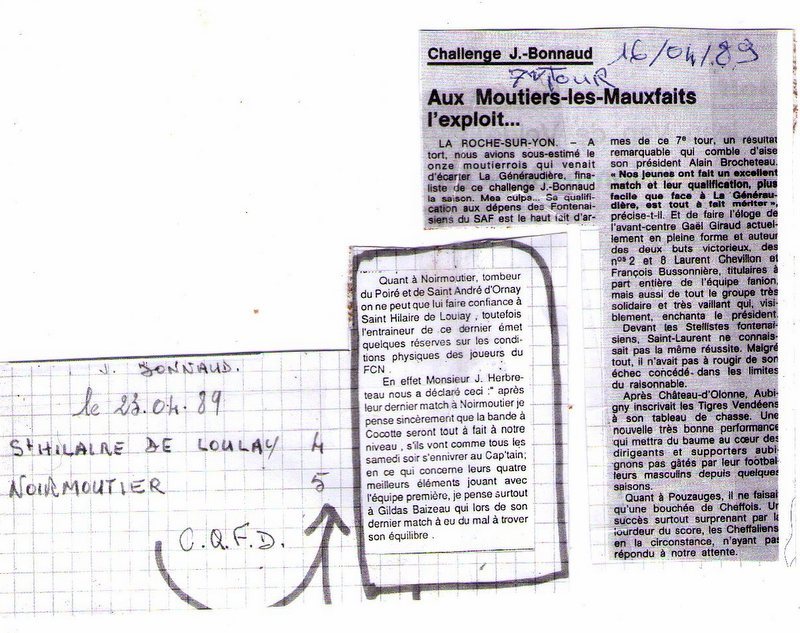 Challenge J.-Bonnaud 16/04/89
7me TOUR
Aux Moutiers-les-Mauxfaits
l'exploit...
LA ROCHE-SUR-YON. – A
tort, nous avions sous-estimé le
onze moutierrois qui venait
d'écarter La Généraudière, fina-
liste de ce challenge J.-Bonnaud
la saison. Mea culpa... Sa qualifi-
cation aux dépens des Fontenai-
siens du SAF est le haut fait d'ar-
mes de ce 7e tour, un résultat
remarquable qui comble d'aise
son président Alain Brocheteau.
« Nos jeunes ont fait un excellent
match et leur qualification, plus
facile que face à La Générau-
dière, est tout à fait mériter »,
précise-t-il. Et de faire l'éloge de
l'avant-centre Gaël Giraud actuel-
lement en pleine forme et auteur
des deux buts victorieux, des
nos 2 et 8 Laurent Chevillon et
François Bussonnière, titulaires à
part entière de l'équipe fanion,
mais aussi de tout le groupe très
solidaire et très vaillant qui, visi-
blement, enchante le président.
Devant les Stellistes fontenai-
siens, Saint-Laurent ne connais-
sait pas la même réussite. Malgré
tout, il n'avait pas à rougir de son
échec concédé dans les limites
du raisonnable.
Après Château-d'Olonne, Aubi-
gny inscrivait les Tigres Vendéens
à son tableau de chasse. Une
nouvelle très bonne performance
qui mettra du baume au cœur des
dirigeants et supporters aubi-
gnons pas gâtés par leur footbal-
leurs masculins depuis quelques
saisons.
Quant à Pouzauges, il ne faisait
qu'une bouchée de Cheffois. Un
succès surtout surprenant par la
lourdeur du score, les Cheffaliens
en la circonstance, n'ayant pas
répondu à notre attente.
Quant à Noirmoutier, tombeur
du Poiré et de Saint André d'Ornay
on ne peut que lui faire confiance à
Saint Hilaire de Loulay , toutefois
l'entraineur de ce dernier émet
quelques réserves sur les condi-
tions physiques des joueurs du
FCN .
En effet Monsieur J. Herbre-
teau nous a déclaré ceci :" après
leur dernier match à Noirmoutier je
pense sincèrement que la bande à
Cocotte seront tout à fait à notre
niveau , s'ils vont comme tous les
samedi soir s'ennivrer au Cap'tain;
en ce qui concerne leurs quatre
meilleurs éléments jouant avec
l'équipe première, je pense surtout
à Gildas Baizeau qui lors de son
dernier match à eu du mal à trover
son équilibre .
J. BONNAUD.
le 23.04.89
St HILAIRE DE LOULAY 4
NOIRMOUTIER 5
C.Q.F.D.